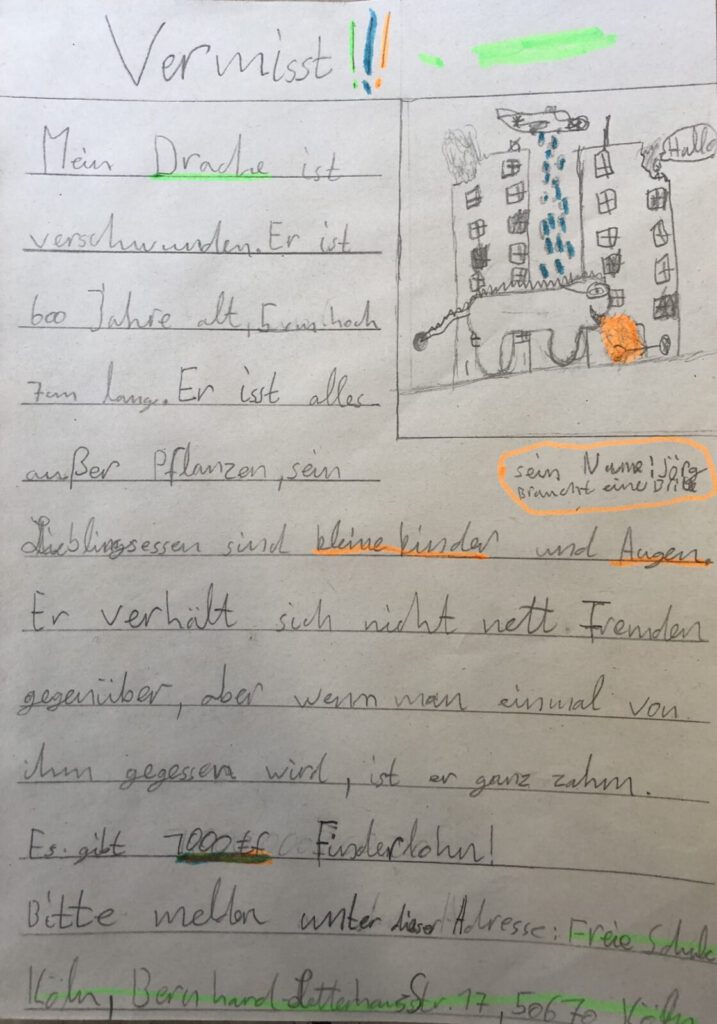 Vermisst!!!
Mein Drache ist
Hallo
verschwunden. Er ist
600 Jahre alt, 5 km hoch
7 km lang. Er isst alles
außer Pflanzen, sein
sein Name: Jörg
Braucht eine Brille
Lieblingsessen sind kleine kinder und Augen.
Er verhält sich nicht nett Fremden
gegenüber, aber wenn man einmal von
ihm gegessen wird, ist er ganz zahm.
Es gibt Finderlohn!
Bitte melden unter dieser Adresse: Freie Schule
Köln, Bernhard-Letterhausstr. 17, 50670 Köln